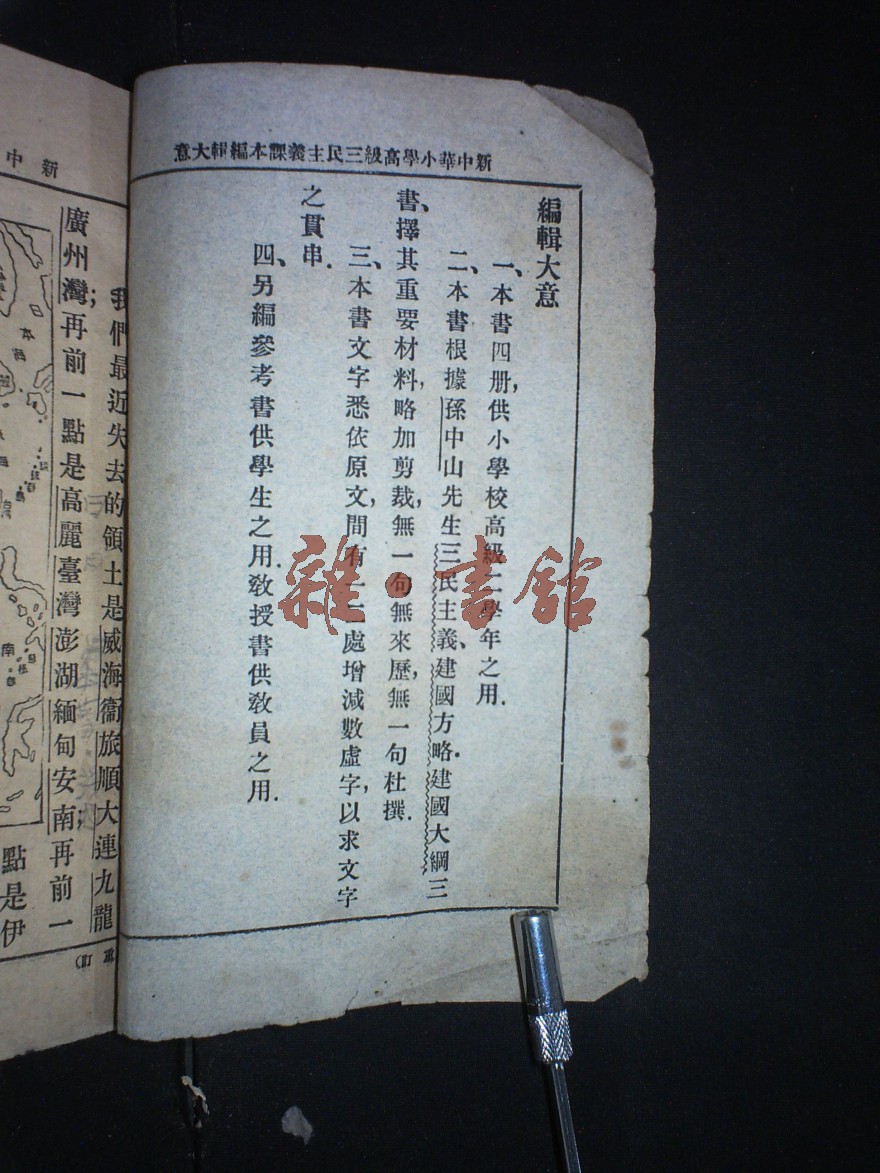 新中華小學高級三民主義課本編輯大意
編輯大意
一、本書四册，供小學校高級二學年之用．
二、本書根據孫中山先生三民主義、建國方略．建國大綱三
書、擇其重要材料，略加剪裁，無一句無來歷，無一句杜撰．
三、本書文字悉依原文，間有一二處增減數虛字，以求文字
之貫串．
四、另編參考書供學生之用．教授書供教員之用．
雜·書館
新中
我們最近失去的領土是威海衞旅順大連九龍
廣州灣；再前一點是高麗臺灣澎湖緬甸安南；再前一
點是伊